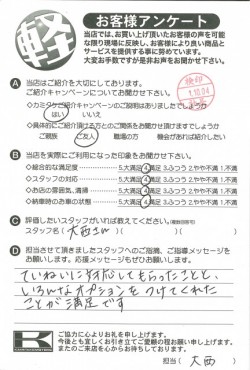 軽
お客様アンケート
当店では、お買い上げ頂いたお客様の声を可能
な限り現場に反映し、お客様により良い商品と
サービスを提供する事に努めています。
大変お手数ですが是非お声をお聞かせ下さい。
検印
A 当店はご紹介を大切にしております。
ご紹介キャンペーンについてお聞かせ下さい。
はい いいえ
ご親戚 ご友人 職場の方 機会があれば紹介したい
B 当店を実際にご利用になった印象をお聞かせ下さい。
◇総合的な満足度 5.大満足 4.満足 3.ふつう 2.やや不満 1.不満
◇スタッフの対応 5.大満足 4.満足 3.ふつう 2.やや不満 1.不満
◇お店の雰囲気、清掃 5.大満足 4.満足 3.ふつう 2.やや不満 1.不満
◇納車時のお車の状態 5.大満足 4.満足 3.ふつう 2.やや不満 1.不満
C 評価したいスタッフがいれば教えてください。(複数回答可)
スタッフ名( 大西さん )
D 担当させて頂きましたスタッフへのご感想、ご指導メッセージを
お願いします。応援メッセージもぜひお願いします。
ていねいに対応してもらったことと、
いろんなオプションをつけてくれた
ことが満足です
K
ご協力に心よりお礼を申し上げます。
今後とも宜しくお引き立てご愛顧の程お願い申し上げます。
またのご来店を心からお待ちしております。
担当( 大西 )